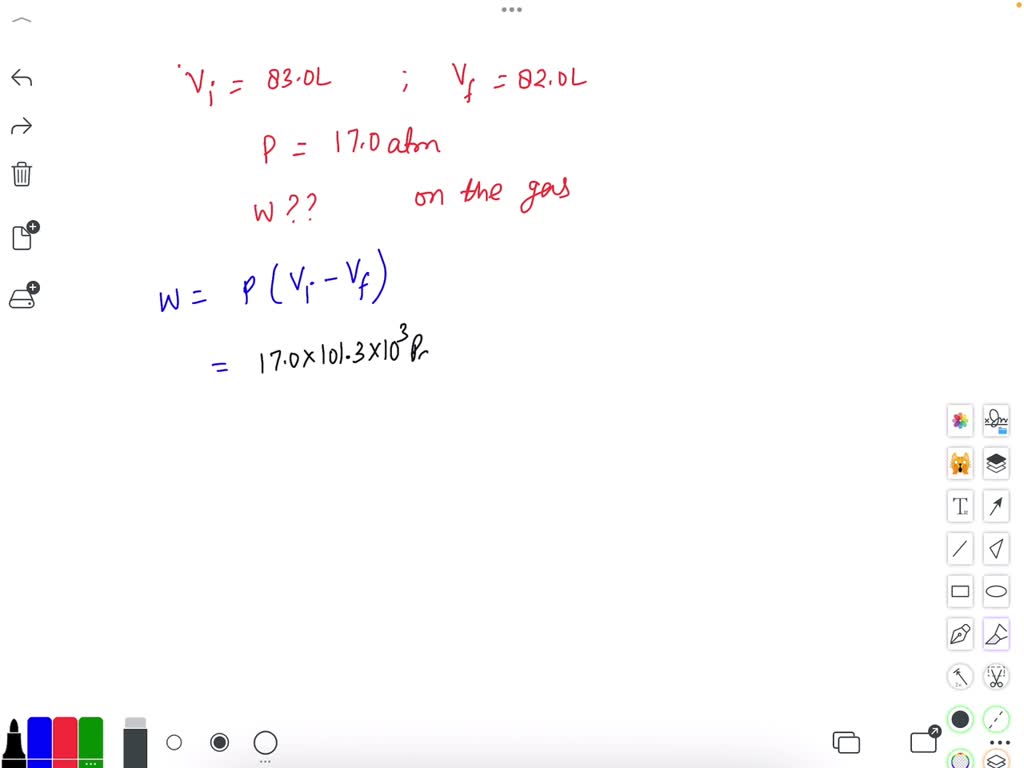 Vi = 83.0L ; Vf = 82.0L
P = 17.0 atm
W ?? on the gas
W = P (Vi - Vf)
= 17.0 x 101.3 x 10³ Pa